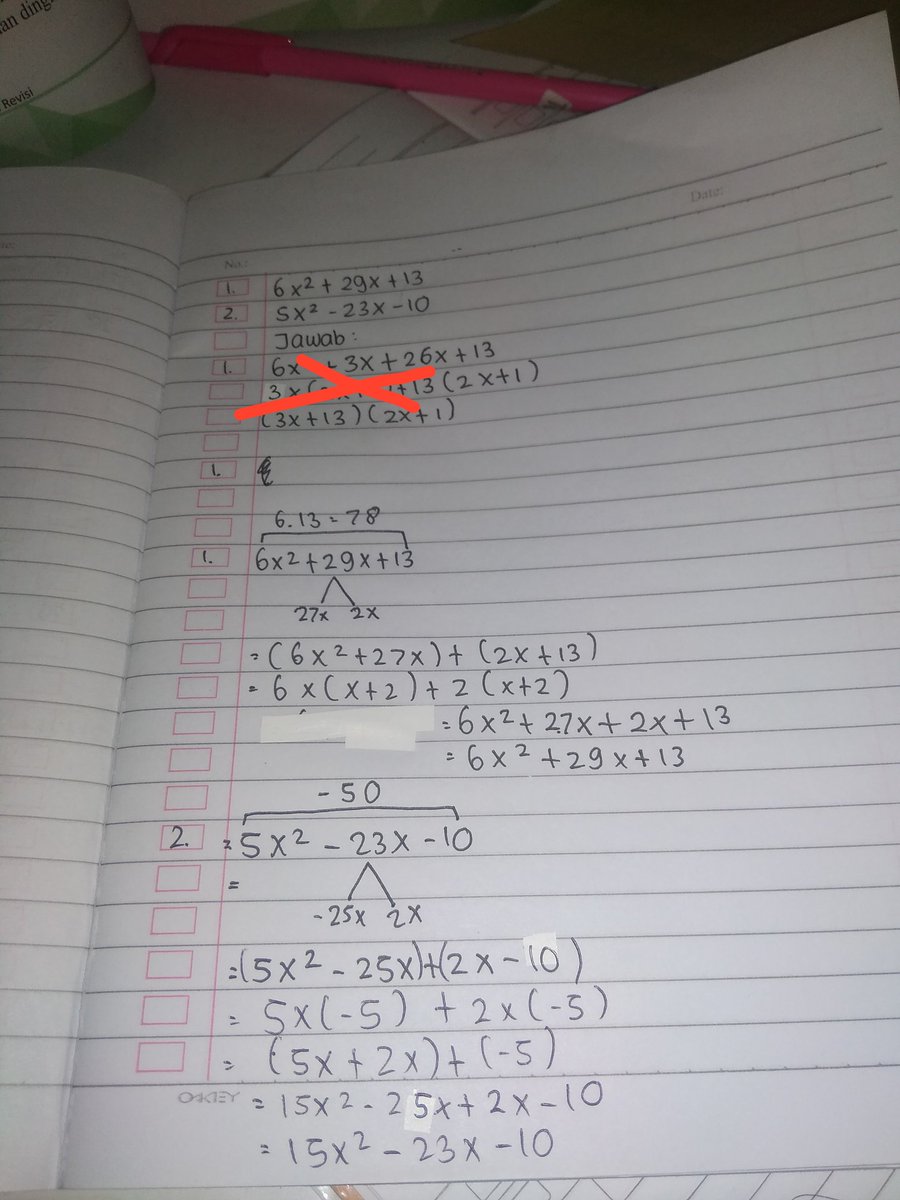 an ding
Revisi
Date:
No.:
1. 6x² + 29x + 13
2. 5x² - 23x - 10
Jawab:
1. 6x + 3x + 26x + 13
3x( +13 (2x+1)
(3x+13)(2x+1)
1.
6.13 = 78
1. 6x² + 29x + 13
27x 2x
= (6x² + 27x) + (2x + 13)
= 6x(x+2) + 2(x+2)
= 6x² + 27x + 2x + 13
= 6x² + 29x + 13
-50
2. = 5x² - 23x - 10
=
-25x 2x
= (5x² - 25x) + (2x - 10)
= 5x(-5) + 2x(-5)
= (5x + 2x) + (-5)
= 15x² - 25x + 2x - 10
OAKLEY
= 15x² - 23x - 10